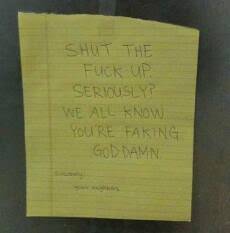 SHUT THE
FUCK UP.
SERIOUSLY?
WE ALL KNOW
YOU'RE FAKING
GODDAMN.
Sincerely,
your neighbors